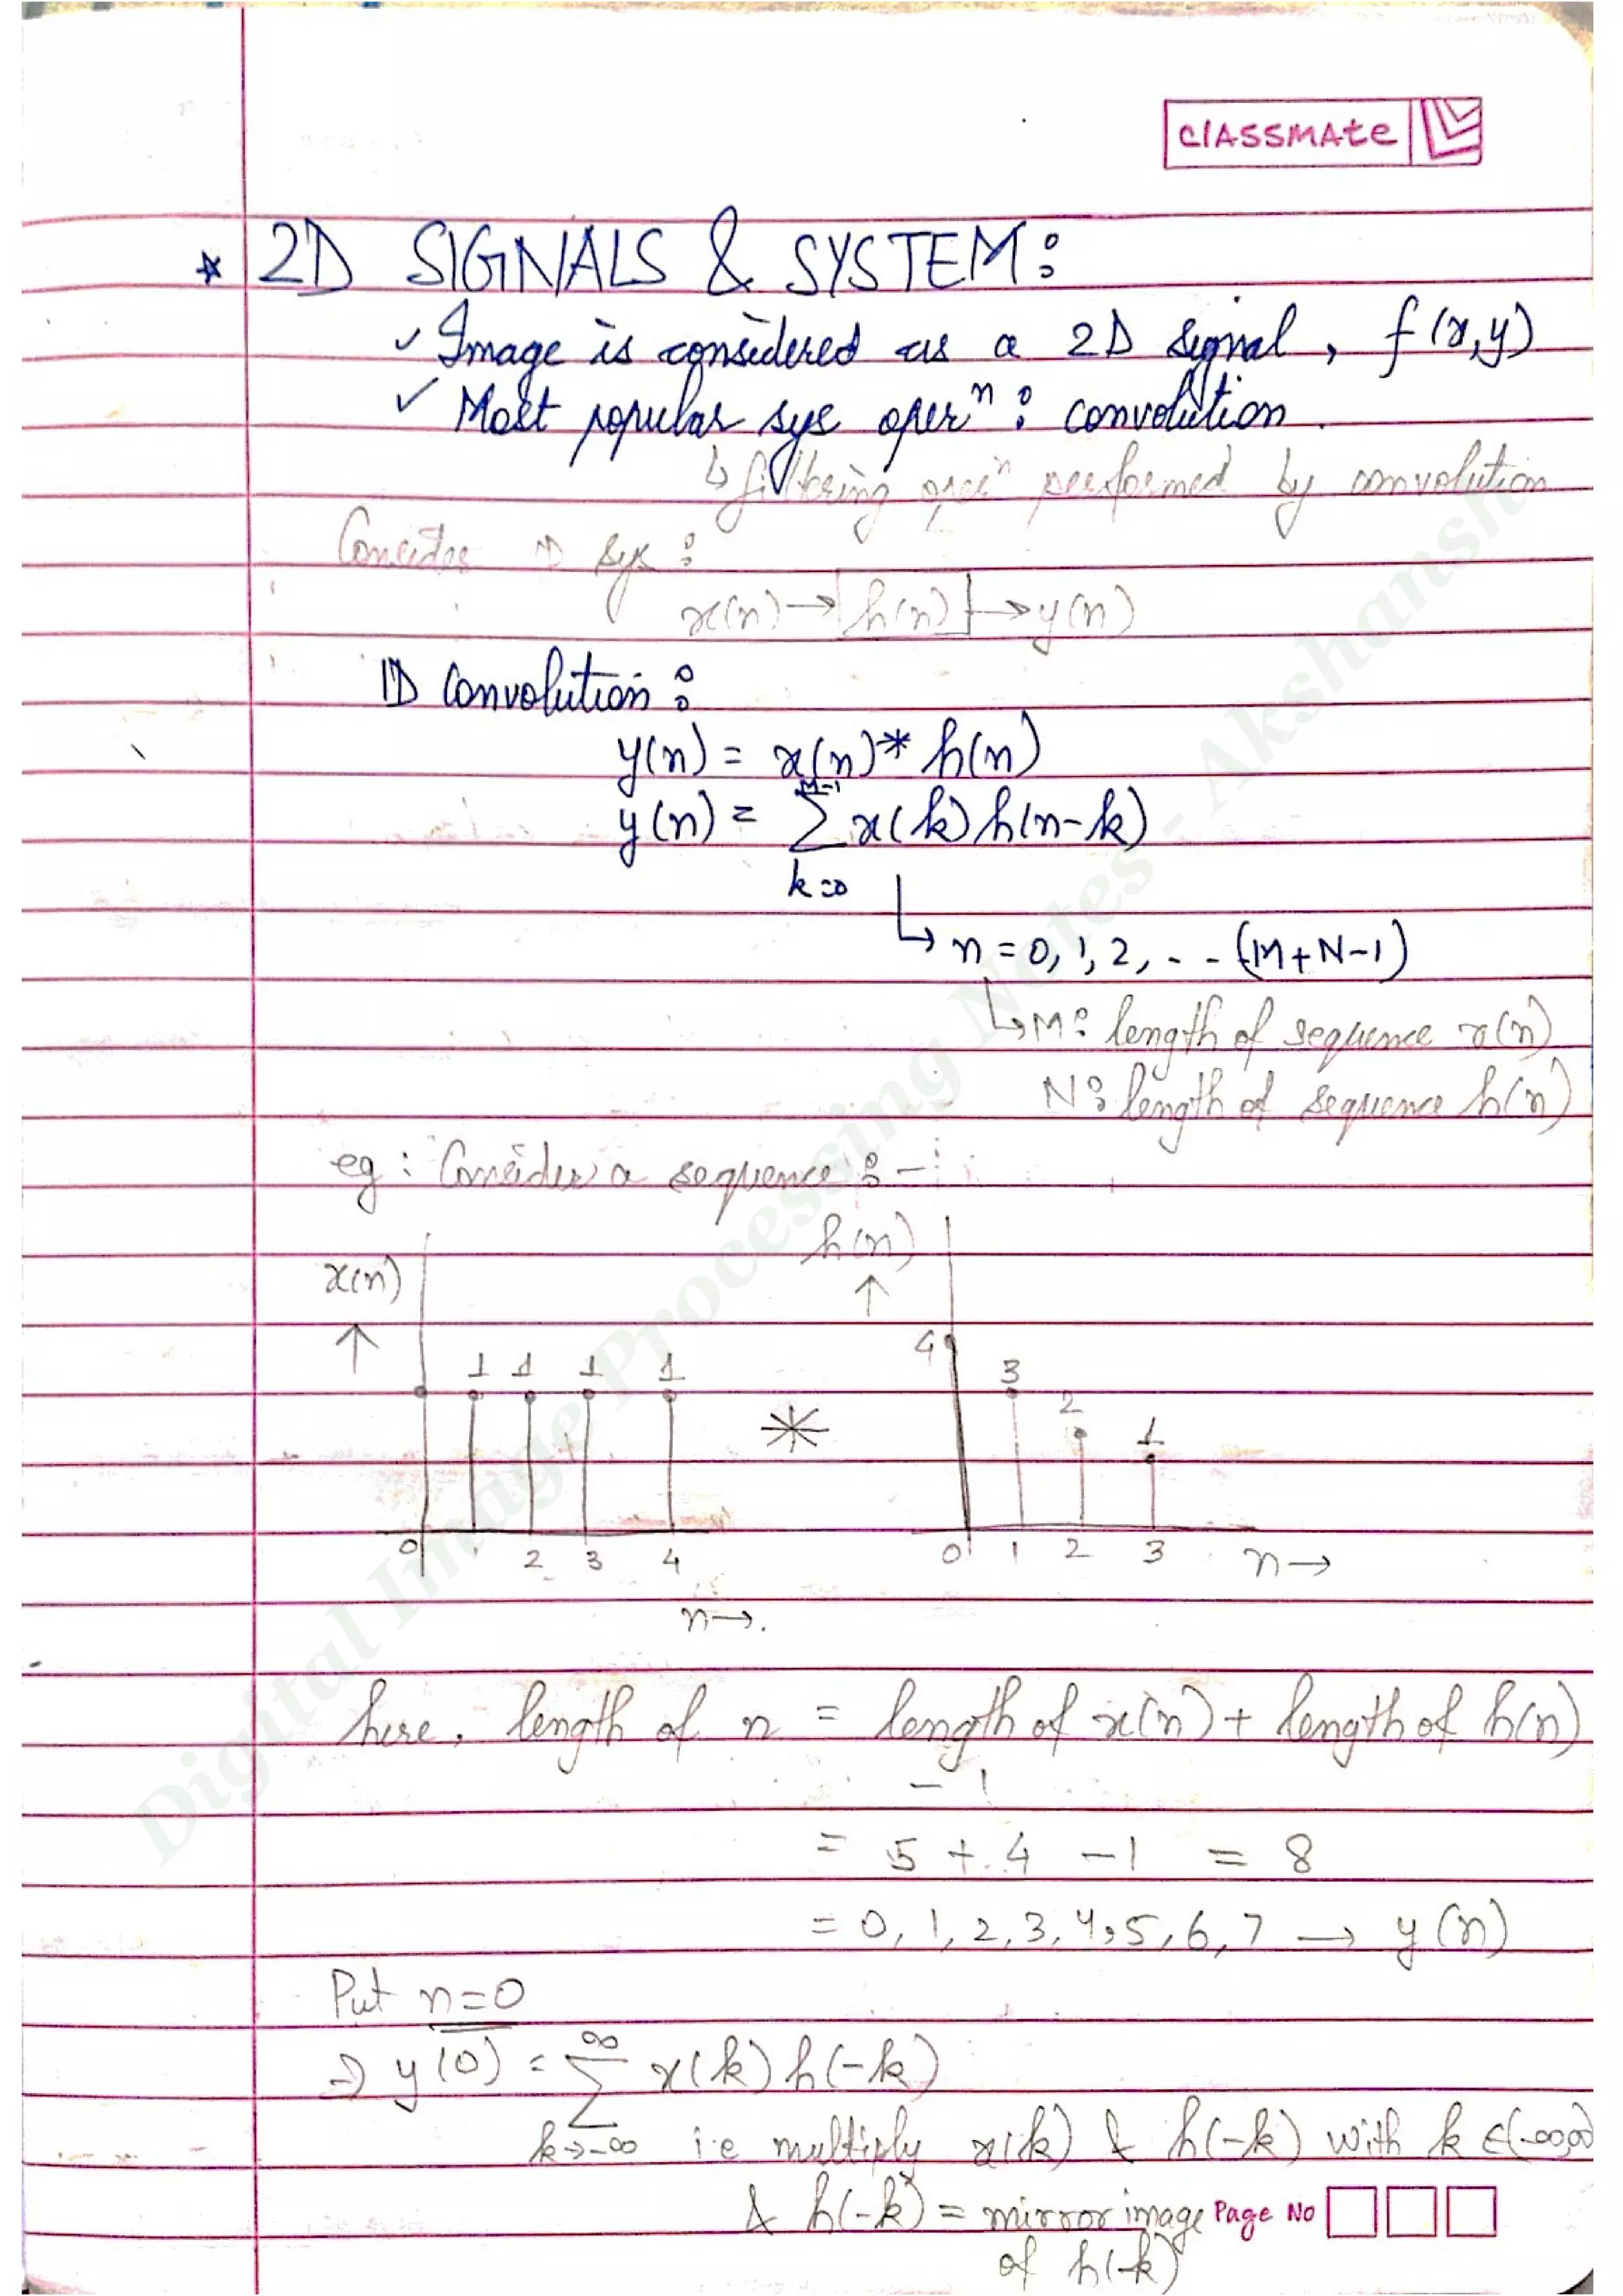 classmate
* 2D SIGNALS & SYSTEM:
✓ Image is considered as a 2D signal, f(x,y)
✓ Most popular sys operⁿ: convolution.
↳ filtering operⁿ performed by convolution
Consider 1D sys:
x(n) → h(n) → y(n)
1D Convolution:
y(n) = x(n) * h(n)
M-1
y(n) = Σ x(k) h(n-k)
k=0
↳ n = 0, 1, 2, - - (M+N-1)
↳ M: length of sequence x(n)
N: length of sequence h(n)
eg: Consider a sequence: -
x(n) ↑ h(n) ↑
4
1 1 1 1 * 3 2 1
0 1 2 3 4 0 1 2 3 n→
n→.
here, length of n = length of x(n) + length of h(n)
- 1
= 5 + 4 - 1 = 8
= 0, 1, 2, 3, 4, 5, 6, 7 → y(n)
Put n=0
⇒ y(0) = Σ x(k) h(-k)
∞
k→-∞ i.e multiply x(k) & h(-k) with k ∈(-∞,∞)
& h(-k) = mirror image
of h(-k)
Page No
Digital Image Processing Notes - Akshansh